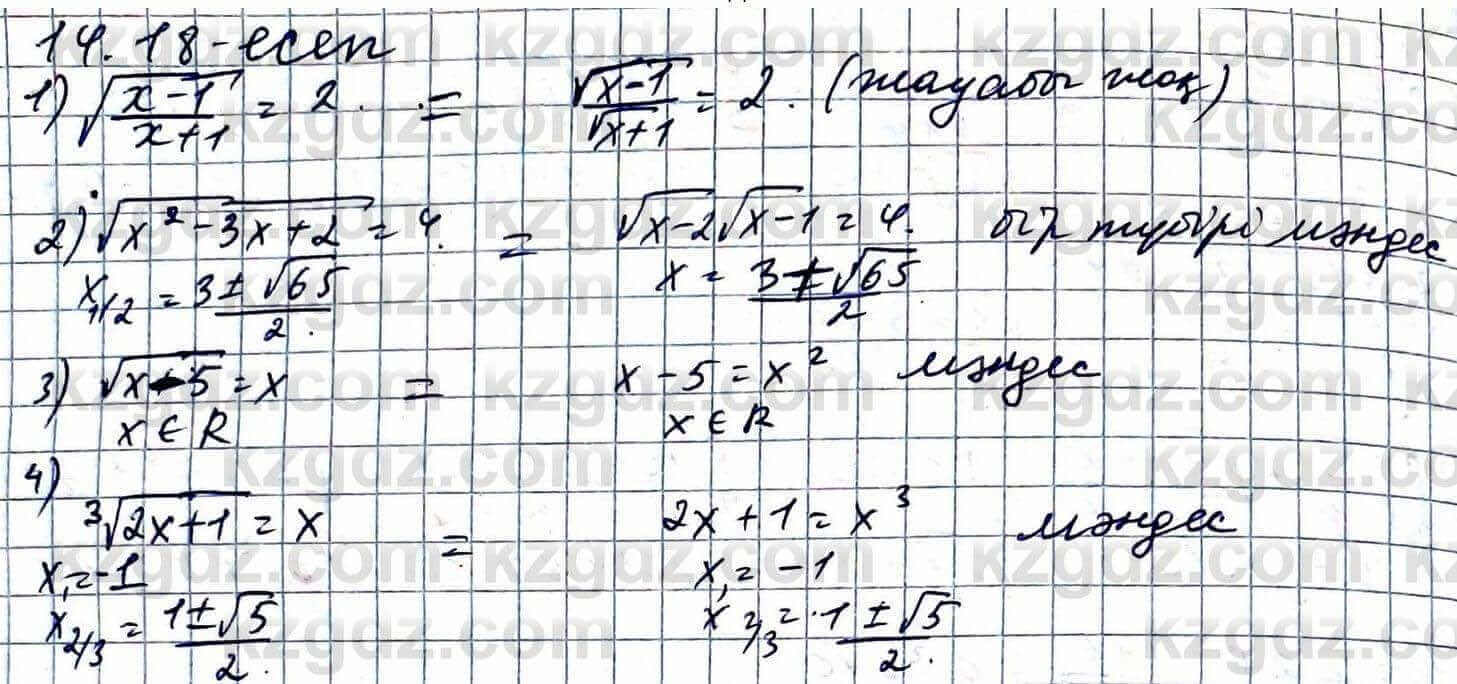 14.18-есеп
1) √((x-1)/(x+1)) = 2. = √(x-1)/√(x+1) = 2. (жауабы жоқ)
2) √(x²-3x+2) = 4. = √(x-2)√(x-1) = 4. бір түбірі мәндес
x₁/₂ = (3±√65)/2. x = (3±√65)/2
3) √(x-5) = x = x-5 = x² мәндес
x ∈ R x ∈ R
4)
³√(2x+1) = x = 2x+1 = x³ мәндес
x₁ = -1 x₁ = -1
x₂/₃ = (1±√5)/2. x₂/₃ = (1±√5)/2.
kzgdz.com